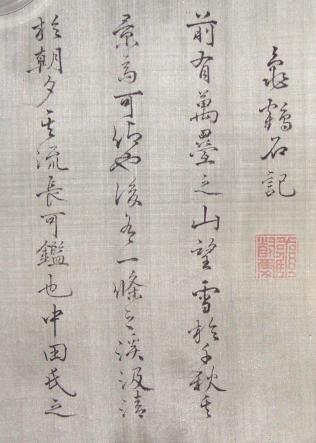 龜鶴石記
前有萬疊之山望雪於千秋其
景高可仰也後有一條之溪汲清
於朝夕其流長可鑑也中田氏之